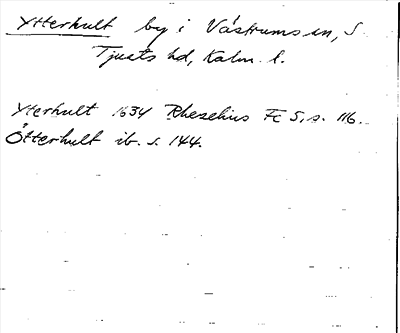 Ytterhult by i Västrums sn, S.
Tjusts hd, Kalm. l.
Yterhult 1634 Rhezelius FC 5, s. 116.
Ötterhult ib. s. 144.